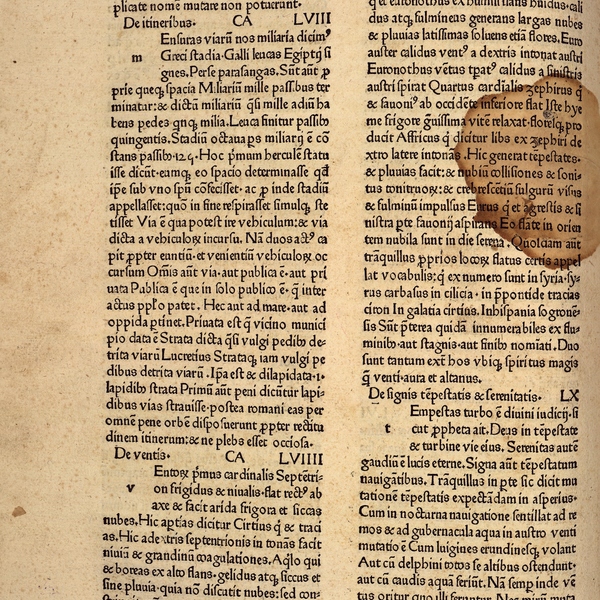 plicate nomē mutare non potuerunt.
De itineribus. CA LVIII
Ensuras viarū nos miliaria dicimꝰ
m Greci stadia·Galli leucas Egiptij si
gnes. Perse parasangas. Sūt aūt ꝓ
prie queqꝫ spacia Miliariū mille passibus ter
minatur: & dictū miliariū q̄si mille adiū ha
bens pedes qnqꝫ milia. Leuca finitur passibꝰ
quingentis. Stadiū octaua ps miliarij ē cō
stans passibꝰ·125·Hoc pͥmum herculē statu
isse dicūt·eumqꝫ eo spacio determinasse qd̄
ip̄e sub vno spū cōfecisset·ac ꝓ inde stadiū
appellasset: quō in fine respirasset simulqꝫ ste
tisset Via ē qua potest ire vehiculum: & via
dicta a vehiculoꝝ incursu. Nā duos actꝰ ca
pit ꝓpter euntiū·et venientiū vehiculoꝝ oc
cursum Om̄is aūt via·aut publica ē·aut pri
uata Publica ē que in solo publico ē·q̄ inter
actus ppl̓o patet. Hec aut ad mare·aut ad
oppida ꝑtinet. Priuata est q̄ vicino munici
pio data ē Strata dicta q̄si vulgi pedibꝰ de-
trita viarū Lucretius Strataqꝫ iam vulgi pe
dibus detrita viarū. Ip̄a est & dilapidata·i·
lapidibꝰ strata Primū aūt peni dicūtur lapi-
dibus vias strauisse·postea romani eas per
omnē pene orbē disposuerunt ꝓpter rectitu
dinem itinerum: & ne plebs esset occiosa.
De ventis. CA LVIIII
Entoꝝ pͥmus cardinalis Septētri-
v on frigidus & niualis·flat rectꝰ ab
axe & facit arida frigora et siccas
nubes. Hic aptias dicitur Cirtius q̄ & traci
as. Hic a dextris septentrionis in tonās facit
niuiū & grandinū coagulationes. Aq̓lo qui
& boreas ex alto flans·gelidus atqꝫ siccus et
sine pluuia·quia nō discutit nubes: sed con-
q̄ et ex humilibus fluidus·cali
dus atqꝫ fulmineus generans largas nubes
& pluuias latissimas soluens etiā flores. Euro
auster calidus ventꝰ a dextris intonat austri
Euronothus vētus tpatꝰ calidus a sinistris
austri spirat Quartus cardīalis zephirus q̄
& fauoniꝰ ab occidēte inferiore flat Iste hye
me frigore grauissima vite relaxat·floresqꝫ pro
ducit Affricus q̄ dicitur libs ex zephiri de
xtro latere intonās. Hic generat tēpestates·
& pluuias facit: & nubiū collisiones & soni-
tus tonitruoꝝ: & crebrescētiū fulgurū visus
& fulminū impulsus Eurus q̄ et agrestis & si
nistra pte fauonij aspirans Eo flāte in orien
tem nubila sunt in die serena. Quosdam aūt
trāquillus ꝓprios locoꝝ flatus certis appel
lat vocabulis: q̄ ex numero sunt in syria·sy-
rus carbasus in cilicia· in ꝓpontide tracias
circon In galatia cirtius. Inhispania sogronē·
sis Sūt pͥterea quidā innumerabiles ex flu-
minibꝰ·aut stagnis·aut finibꝰ nomiati. Duo
sunt tantum extͣ hos vbiqꝫ spiritus magis
q̄ venti·aura et altanus.
De signis tēpestatis & serenitatis· LX
Empestas turbo ē diuini iudicij·si
t cut ꝓpheta ait. Deus in tēpestate
& turbine vie eius. Serenitas autē
gaudiū ē lucis eterne. Signa aūt tēpestatum
nauigātibus. Trāquillus in pte sic dicit mu
tationē tēpestatis expectādam in asperius·
Cum in nocturna nauigatione sentillad ad re
mos & ad gubernacula aqua in austro venti
mutatio ē Cum luigines erundinesqꝫ volant
Aut cū delphini totos se altibus ostendunt·
aut cū caudis aquā feriūt. Nā semp inde vē
tus oritur quo illi feruntur. Nec mirum